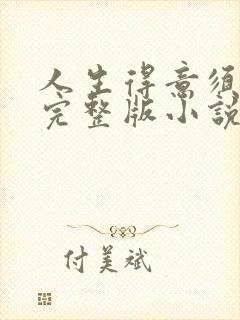 人生得意须
完整版小説
付美斌